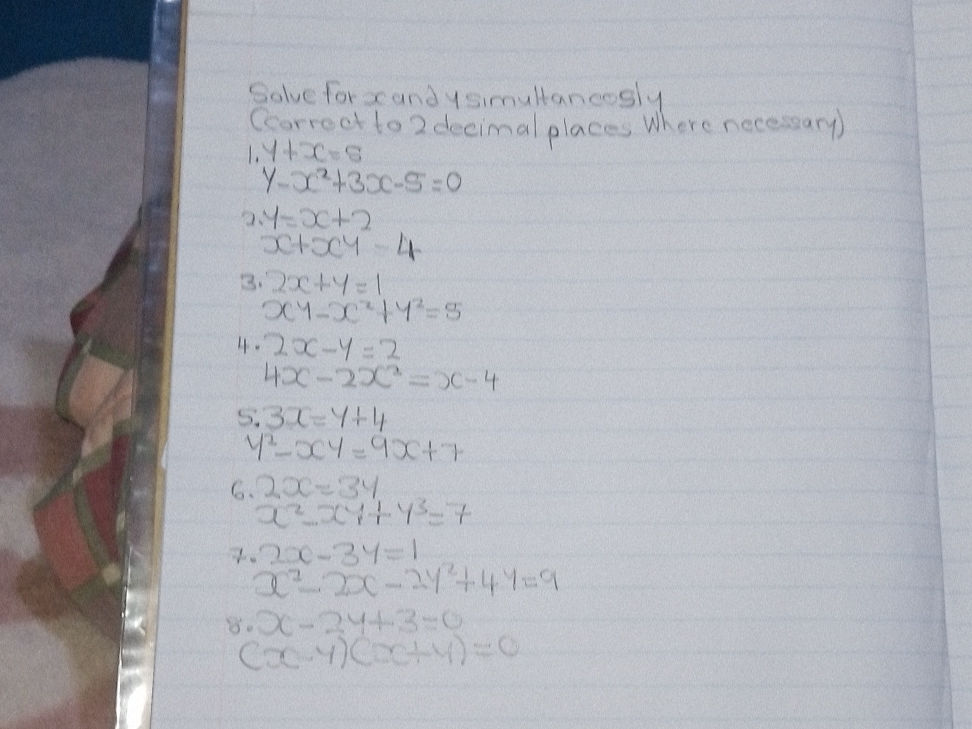 Solve for x and y simultaneosly
(correct to 2 decimal places Where necessary)
1. y+x=5
y-x²+3x-5=0
2. y=x+2
x+xy=4
3. 2x+y=1
xy-x²+y²=5
4. 2x-y=2
4x-2x²=x-4
5. 3x=y+4
y²-xy=9x+7
6. 2x=3y
x²-xy+y³=7
7. 2x-3y=1
x²-2x-2y²+4y=9
8. x-2y+3=0
(x-y)(x+y)=0